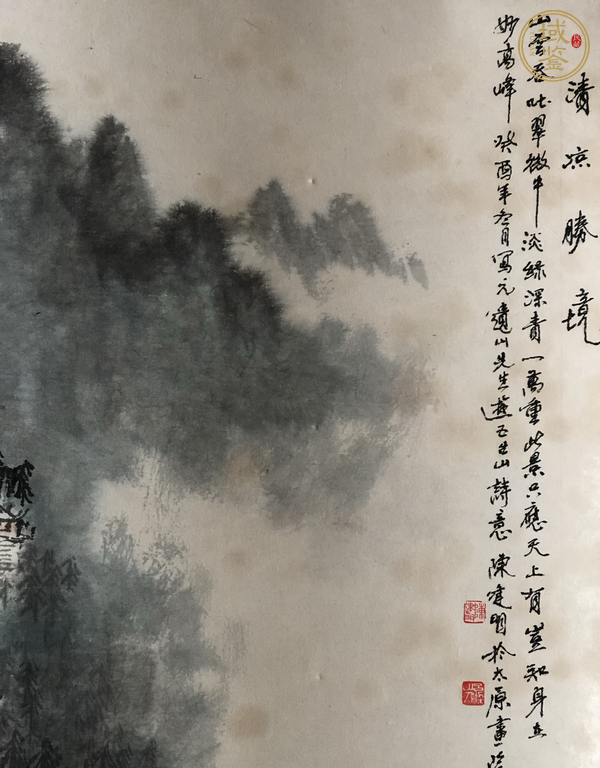 域鑒
清凉勝境
山雲吞吐翠微中淡綠深青一萬重此景只應天上有豈知身在
妙高峰癸酉年冬月寫元遺山先生遊五台山詩意陳建明於太原畫院